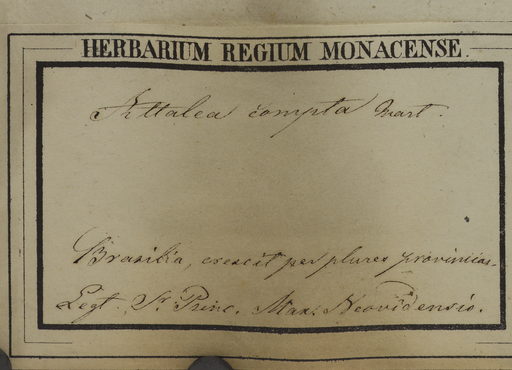 HERBARIUM REGIUM MONACENSE
Attalea compta Mart.
Brasilia, crescit per plures provincias.
Legt. Sr. Princ. Max. Neovidensis.